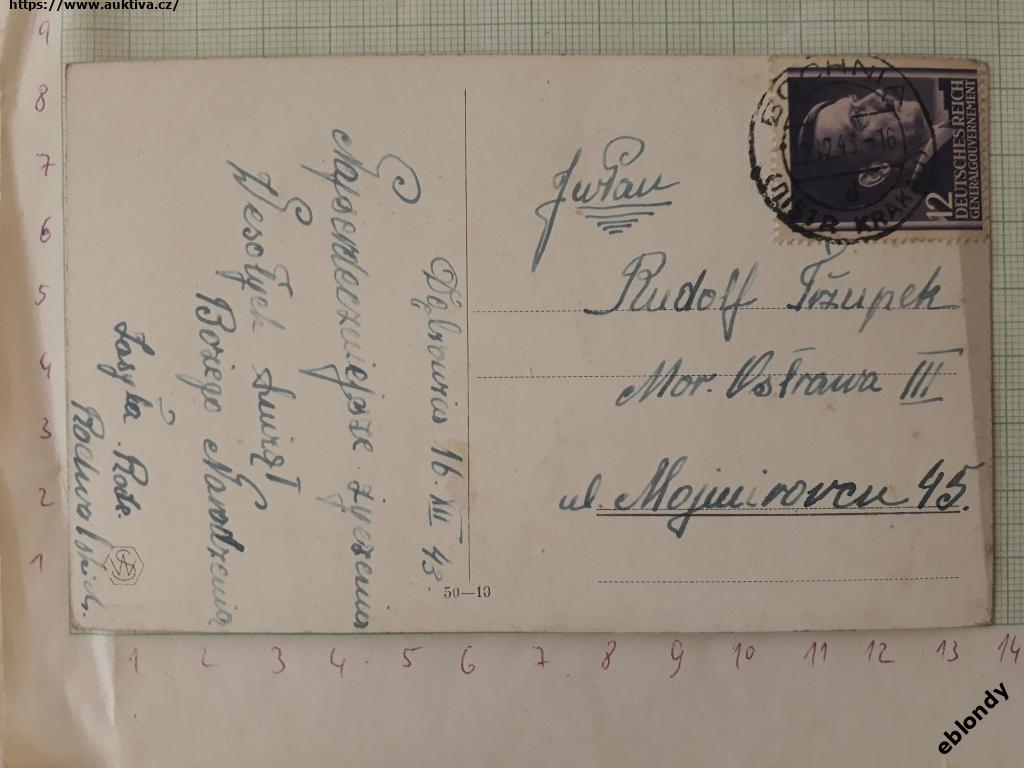 https://www.auktiva.cz/
9
8
7
6
5
4
3
2
1
Dąbrowica 16. XII 43.
Najserdeczniejsze życzenia
Wesołych Świąt
Bożego Narodzenia
Zasyła
50—10
BOCHNIA
16
d
DISTR. KRAKAU
12
DEUTSCHES REICH
GENERALGOUVERNEMENT
Rudolf Tžupek
Mor. Ostrawa III
ul. Mojmirovcu 45.
1 2 3 4 5 6 7 8 9 10 11 12 13 14
eblondy